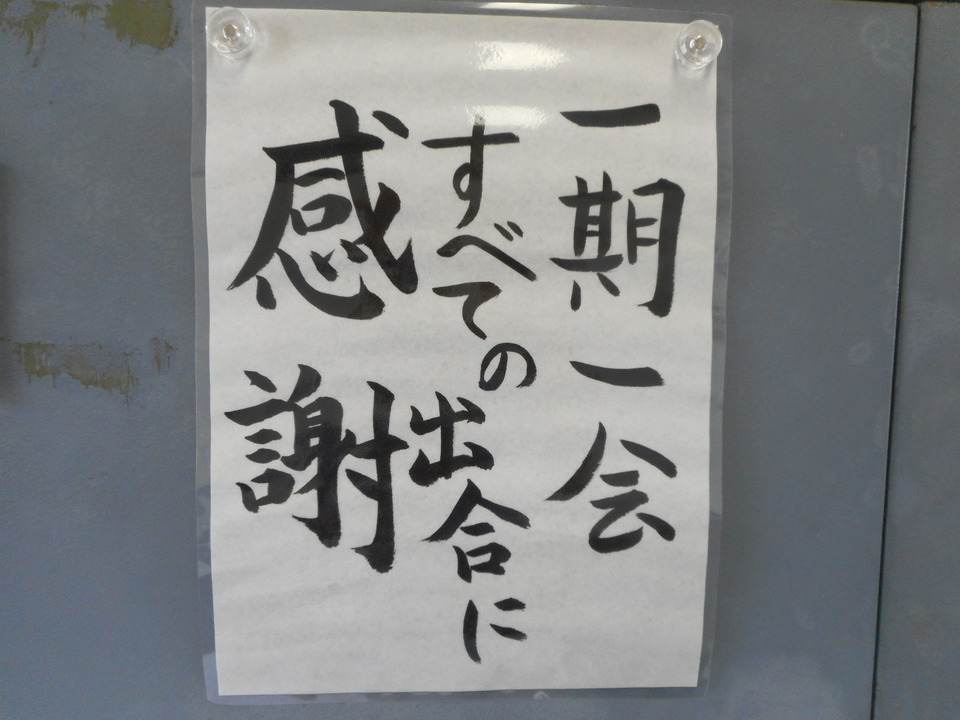 一期一会
すべての出合に
感謝